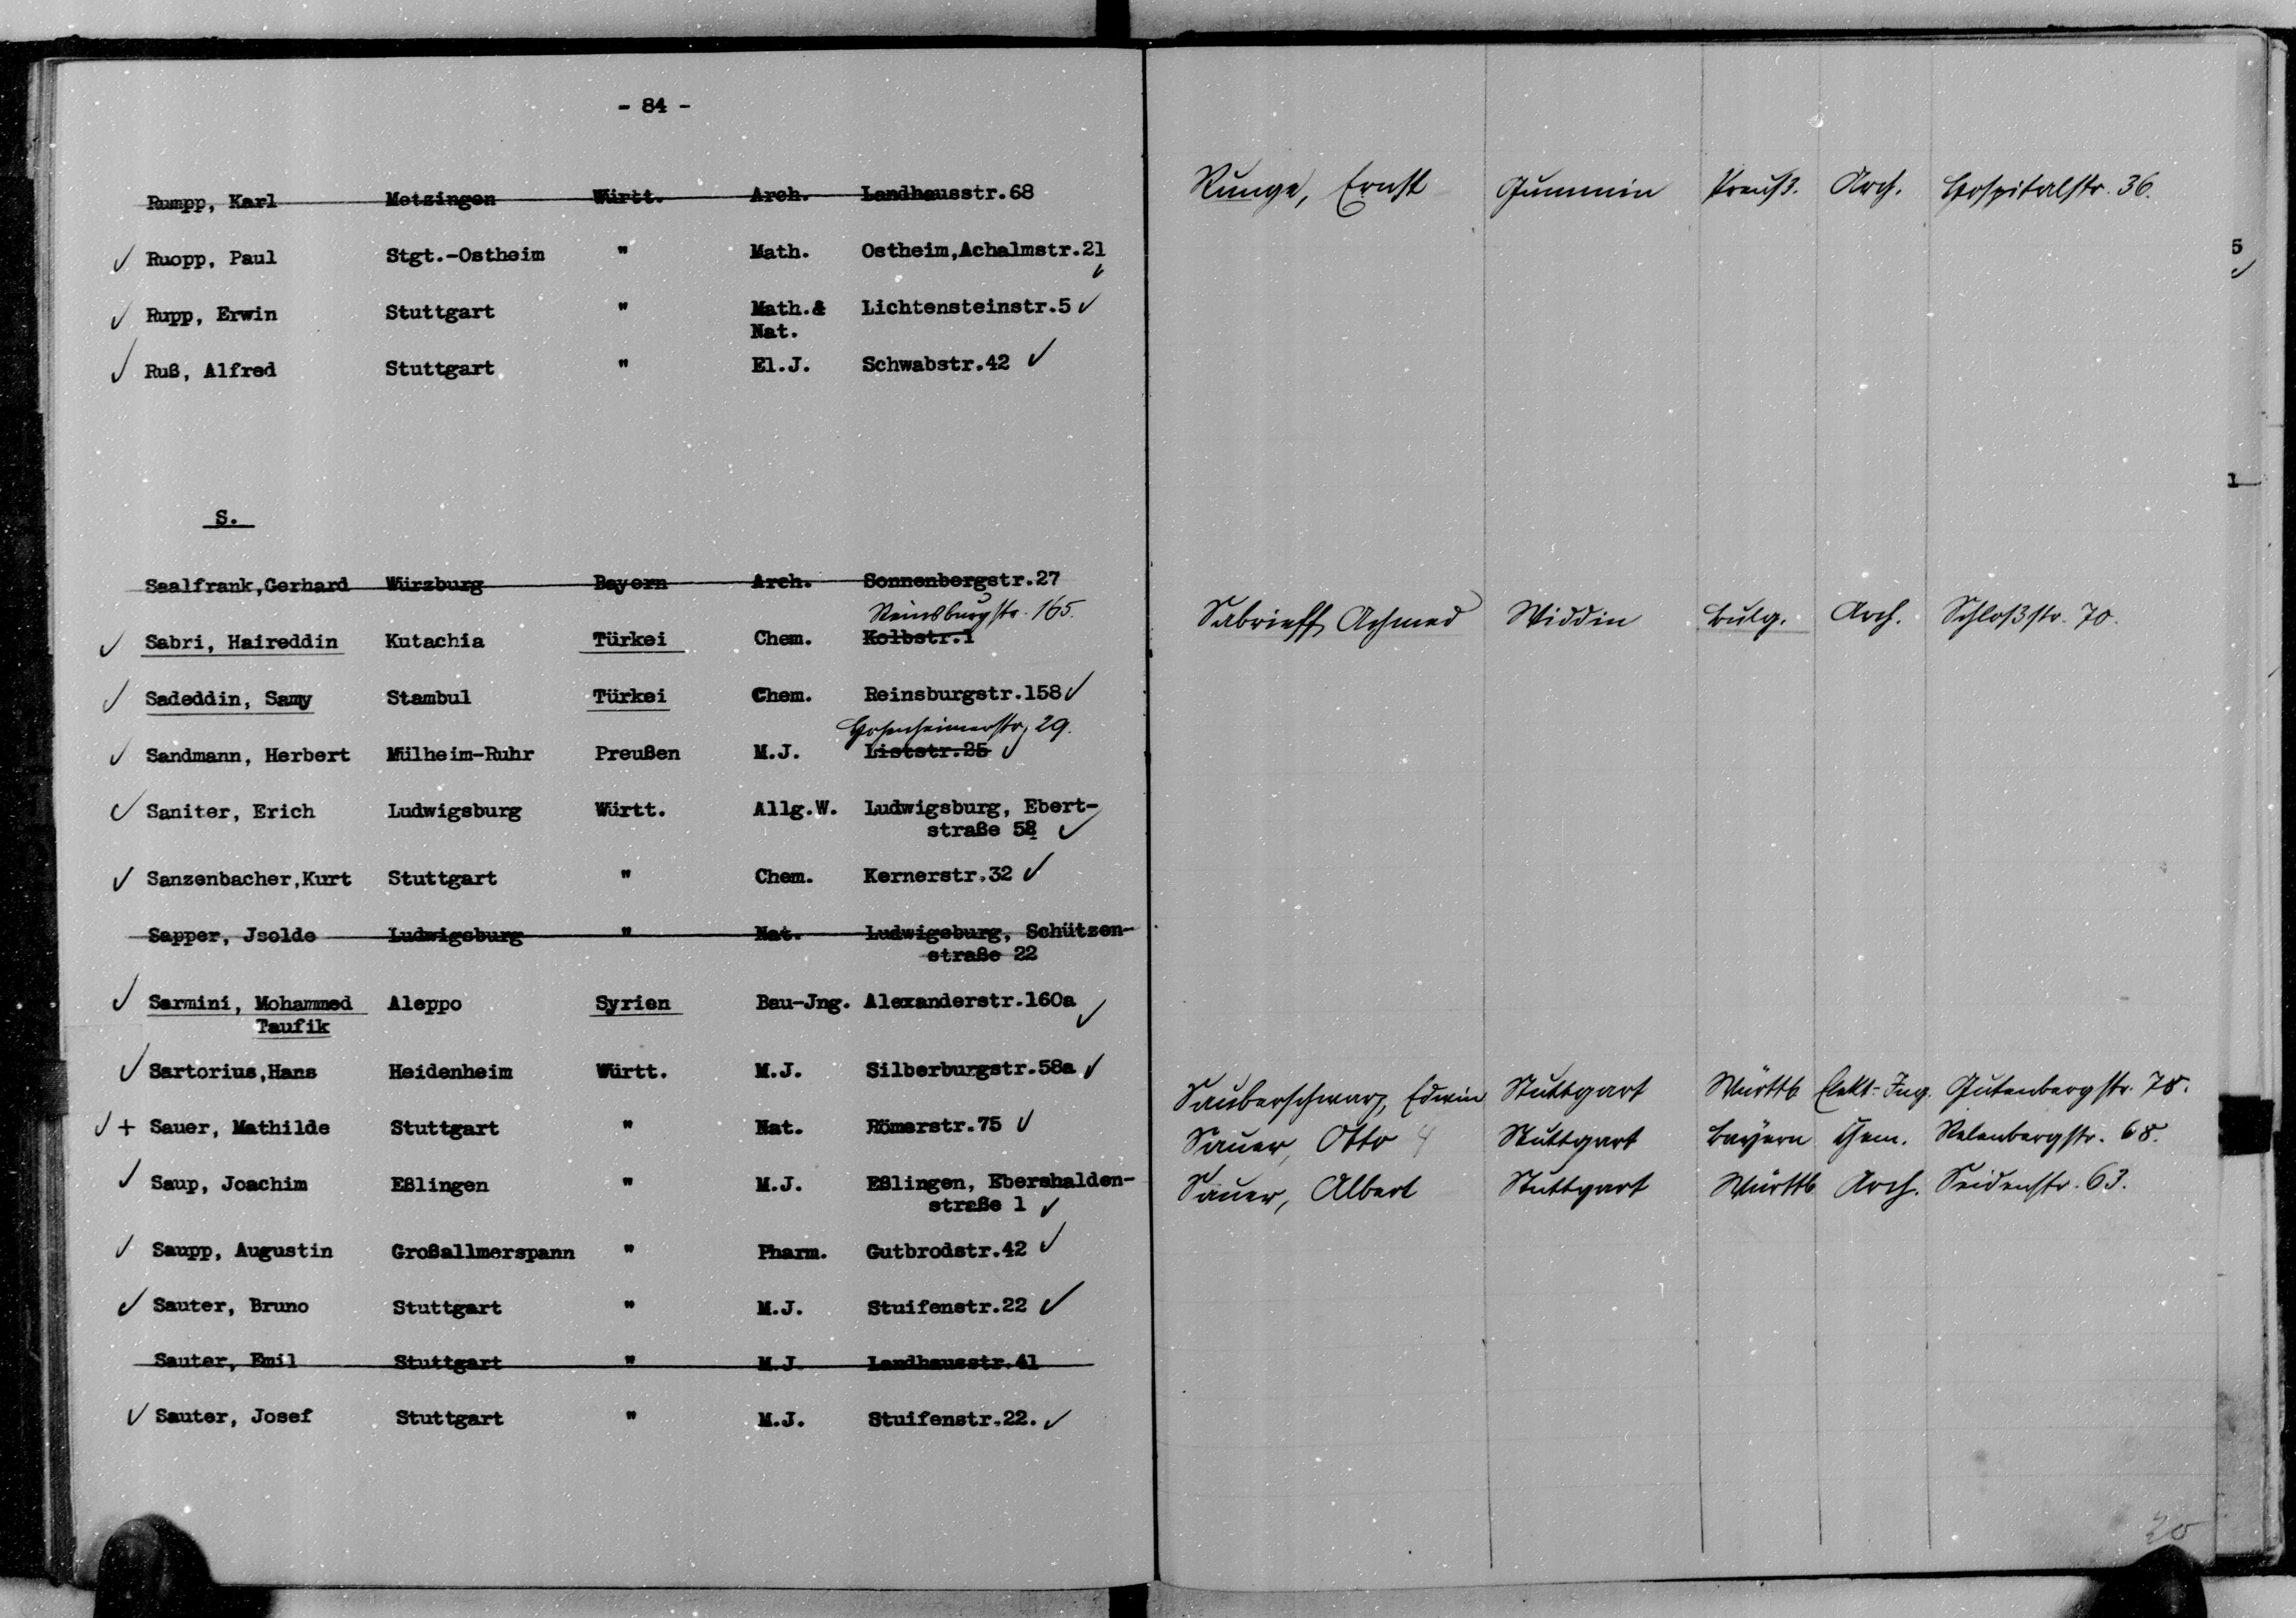 - 84 -
Rumpp, Karl Metzingen Württ. Arch. Landhausstr.68
Ruopp, Paul Stgt.-Ostheim " Math. Ostheim,Achalmstr.21
Rupp, Erwin Stuttgart " Math.& Lichtensteinstr.5
Nat.
Ruß, Alfred Stuttgart " El.J. Schwabstr.42
S.
Saalfrank,Gerhard Würzburg Bayern Arch. Sonnenbergstr.27
Reinsburgstr. 165.
Sabri, Haireddin Kutachia Türkei Chem. Kolbstr.1
Sadeddin, Samy Stambul Türkei Chem. Reinsburgstr.158
Hohenheimerstr. 29.
Sandmann, Herbert Mülheim-Ruhr Preußen M.J. Liststr.25
Saniter, Erich Ludwigsburg Württ. Allg.W. Ludwigsburg, Ebert-
straße 58
Sanzenbacher,Kurt Stuttgart " Chem. Kernerstr.32
Sapper, Jsolde Ludwigsburg " Nat. Ludwigsburg, Schützen-
straße 22
Sarmini, Mohammed Aleppo Syrien Bau-Jng. Alexanderstr.160a
Taufik
Sartorius,Hans Heidenheim Württ. M.J. Silberburgstr.58a
+ Sauer, Mathilde Stuttgart " Nat. Römerstr.75
Saup, Joachim Eßlingen " M.J. Eßlingen, Ebershalden-
straße 1
Saupp, Augustin Großallmerspann " Pharm. Gutbrodstr.42
Sauter, Bruno Stuttgart " M.J. Stuifenstr.22
Sauter, Emil Stuttgart " M.J. Landhausstr.41
Sauter, Josef Stuttgart " M.J. Stuifenstr.22.
Runge, Ernst Gummin Preuß. Arch. Hospitalstr. 36.
Sabrieff Achmed Widdin Bulg. Arch. Schloßstr. 70.
Sauberschwarz, Edwin Stuttgart Württb Elekt.-Ing. Gutenbergstr. 78.
Sauer, Otto Stuttgart Bayern Chem. Relenbergstr. 68.
Sauer, Albert Stuttgart Württb Arch. Seidenstr. 63.
5
1
20